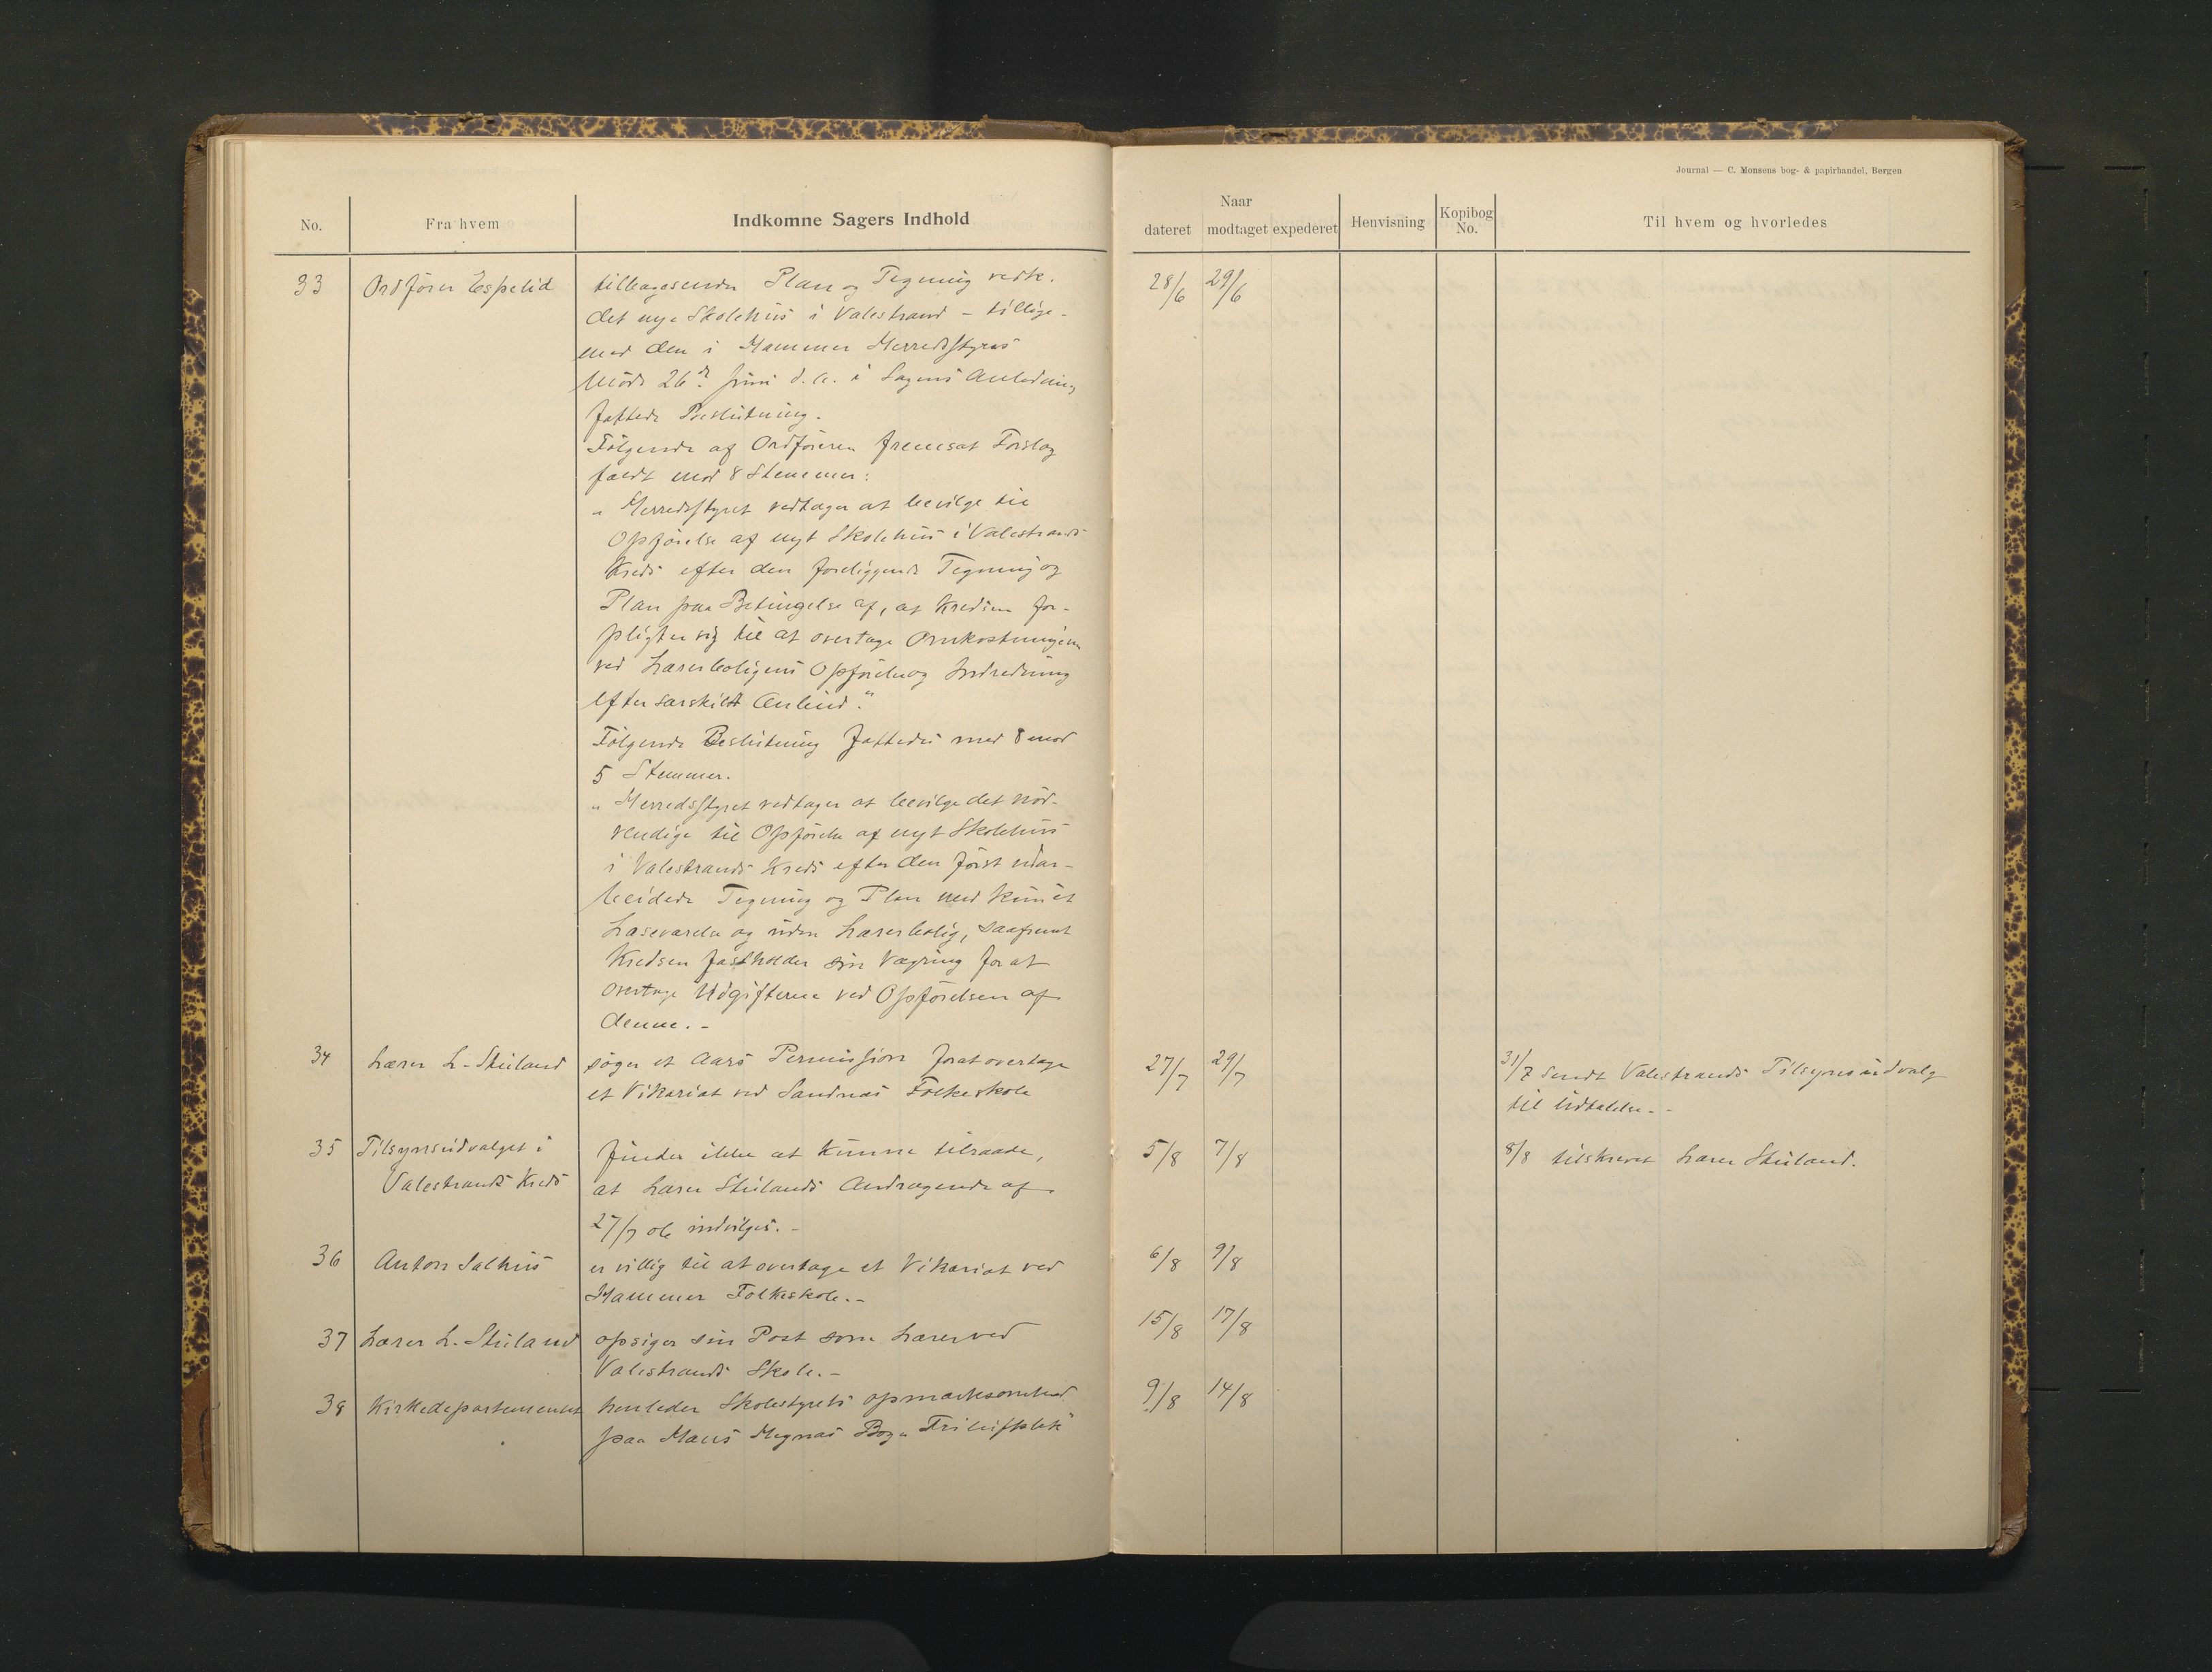 Journal — C. Monsens bog- & papirhandel, Bergen
No. Fra hvem Indkomne Sagers Indhold
Naar
dateret modtaget expederet Henvisning Kopibog No. Til hvem og hvorledes
33 Ordfører Espelid tilbagesender Plan og Tegning vedk. 28/6 29/6
det nye Skolehus i Valestrand – tillige-
med den i Hammer Herredsstyres
Møde 26de Juni d. A. i Sagens Anledning
fattede Beslutning.
Følgende af Ordføreren fremsat Forslag
faldt mod 8 Stemmer:
„Herredsstyret vedtager at bevilge til
Opførelse af nyt Skolehus i Valestrands
Kreds efter den foreliggende Tegning og
Plan paa Betingelse af, at Kredsen for-
pligter sig til at overtage Omkostningerne
ved Lærerboligens Opførelse og Indredning
efter særskilt Anbud."
Følgende Beslutning fattedes med 8 mod
5 Stemmer.
„Herredsstyret vedtager at bevilge det nød-
vendige til Opførelse af nyt Skolehus
i Valestrands Kreds efter den først udar-
beidede Tegning og Plan med kun et
Læseværelse og uden Lærerbolig, saafremt
Kredsen fastholder sin Vægring for at
overtage Udgifterne ved Opførelsen af
denne. –
34 Lærer L. Stuland søger et Aars Permission for at overtage 27/7 29/7 31/7 sendt Valestrands Tilsynsudvalg
et Vikariat ved Sandnæs Folkeskole til Udtalelse. –
35 Tilsynsudvalget i finder ikke at kunne tilraade, 5/8 7/8 8/8 tilskrevet Lærer Stuland.
Valestrands Kreds at Lærer Stulands Andragende af
27/7 indvilges. –
36 Anton Salhus er villig til at overtage et Vikariat ved 6/8 9/8
Hammer Folkeskole. –
37 Lærer L. Stuland opsiger sin Post som Lærer ved 15/8 17/8
Valestrands Skole. –
38 Kirkedepartementet henleder Skolestyrets opmærksomhed 9/8 14/8
paa Hans Hegnas Bog „Friluftslek"